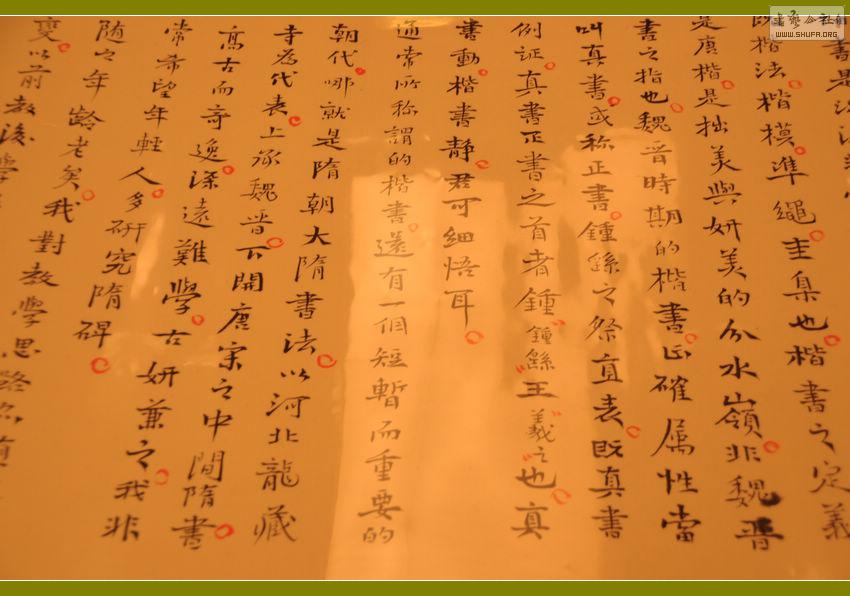 書是
既楷法楷模準繩圭臬也楷書之定義
是唐楷是拙美與妍美的分水嶺非魏晋
書之指也魏晋時期的楷書正確属性當
叫真書或称正書鍾繇之祭直表既真書
例証真書正書之首者鍾鍾繇王羲之也真
書動楷書静君可細悟耳
通常所称謂的楷書還有一個短暫而重要的
朝代哪就是隋朝大隋書法以河北龍藏
寺為代表上承魏晋下開唐宋之中間隋書
高古而奇逸深遠難學古妍兼之我非
常希望年輕人多研究隋碑
随之年齡老矣我對教學思路
以前教後學
書藝公社
WWW.SHUFA.ORG